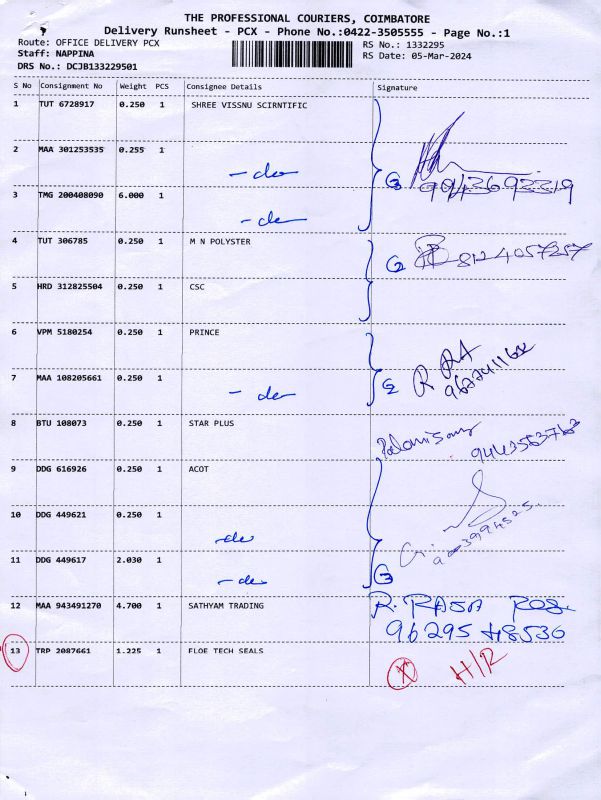 THE PROFESSIONAL COURIERS, COIMBATORE
Delivery Runsheet - PCX - Phone No.:0422-3505555 - Page No.:1
Route: OFFICE DELIVERY PCX
RS No.: 1332295
Staff: NAPPINA
RS Date: 05-Mar-2024
DRS No.: DCJB133229501
S No Consignment No Weight PCS Consignee Details Signature
1 TUT 6728917 0.250 1 SHREE VISSNU SCIRNTIFIC
2 MAA 301253535 0.255 1
- do
3 TMG 200408090 6.000 1 3 9943692219
- do
4 TUT 306785 0.250 1 M N POLYSTER 2 8124057257
5 HRD 312825504 0.250 1 CSC
6 VPM 5180254 0.250 1 PRINCE
7 MAA 108205661 0.250 1 - do 2
8 BTU 108073 0.250 1 STAR PLUS
9 DDG 616926 0.250 1 ACOT
10 DDG 449621 0.250 1
- do
11 DDG 449617 2.030 1
- do 3
12 MAA 943491270 4.700 1 SATHYAM TRADING R. RAJA
96295 48530
13 TRP 2087661 1.225 1 FLOE TECH SEALS H/R